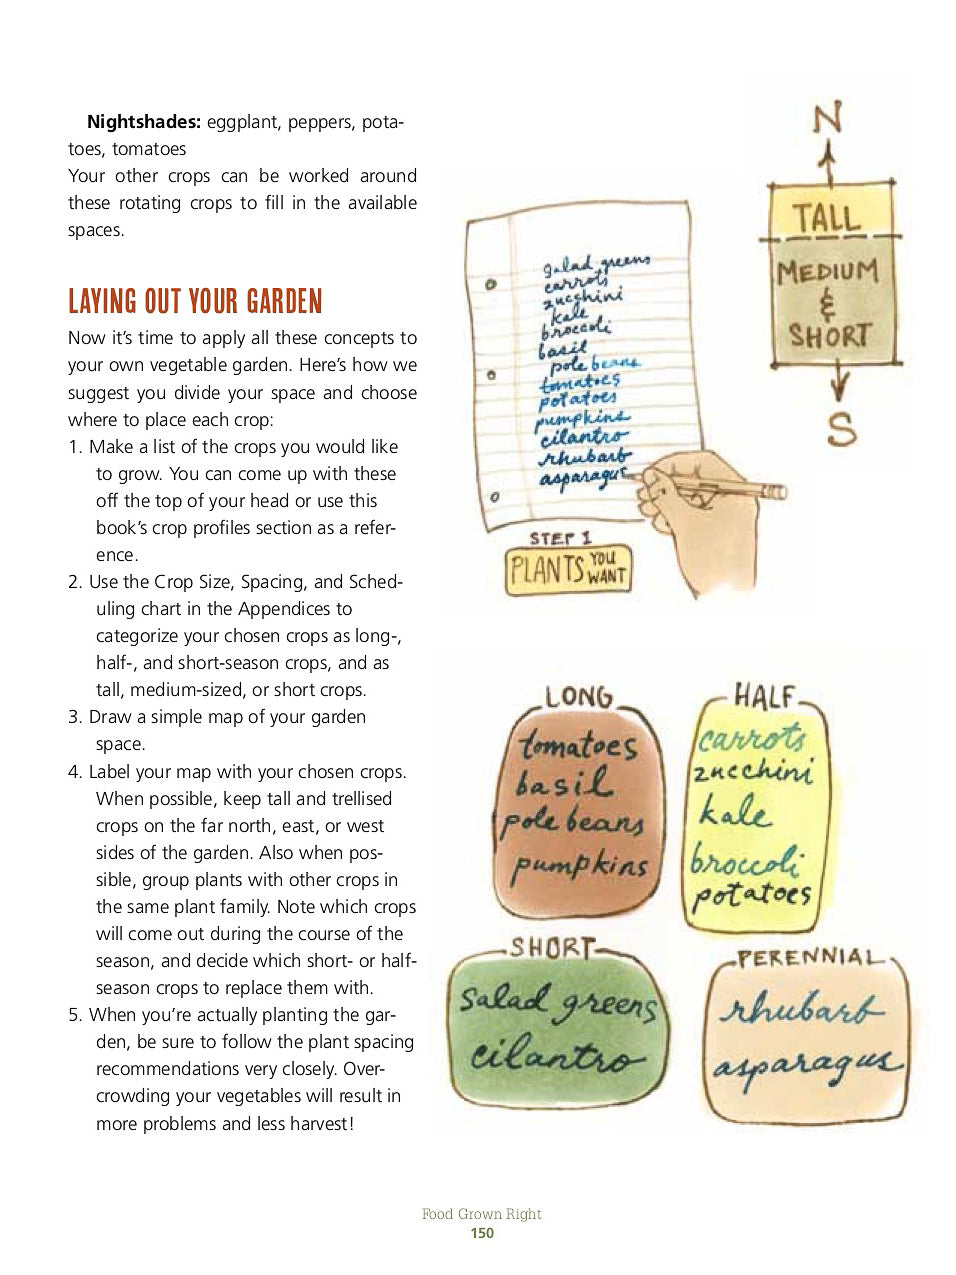 Nightshades: eggplant, peppers, pota-
toes, tomatoes
Your other crops can be worked around
these rotating crops to fill in the available
spaces.
LAYING OUT YOUR GARDEN
Now it's time to apply all these concepts to
your own vegetable garden. Here's how we
suggest you divide your space and choose
where to place each crop:
1. Make a list of the crops you would like
to grow. You can come up with these
off the top of your head or use this
book's crop profiles section as a refer-
ence.
2. Use the Crop Size, Spacing, and Sched-
uling chart in the Appendices to
categorize your chosen crops as long-,
half-, and short-season crops, and as
tall, medium-sized, or short crops.
3. Draw a simple map of your garden
space.
4. Label your map with your chosen crops.
When possible, keep tall and trellised
crops on the far north, east, or west
sides of the garden. Also when pos-
sible, group plants with other crops in
the same plant family. Note which crops
will come out during the course of the
season, and decide which short- or half-
season crops to replace them with.
5. When you're actually planting the gar-
den, be sure to follow the plant spacing
recommendations very closely. Over-
crowding your vegetables will result in
more problems and less harvest!
N
TALL
MEDIUM
&
SHORT
S
salad greens
carrots
zucchini
kale
broccoli
basil
pole beans
tomatoes
potatoes
pumpkins
cilantro
rhubarb
asparagus
STEP 1
PLANTS YOU WANT
LONG
tomatoes
basil
pole beans
pumpkins
HALF
carrots
zucchini
kale
broccoli
potatoes
SHORT
salad greens
cilantro
PERENNIAL
rhubarb
asparagus
Food Grown Right
150